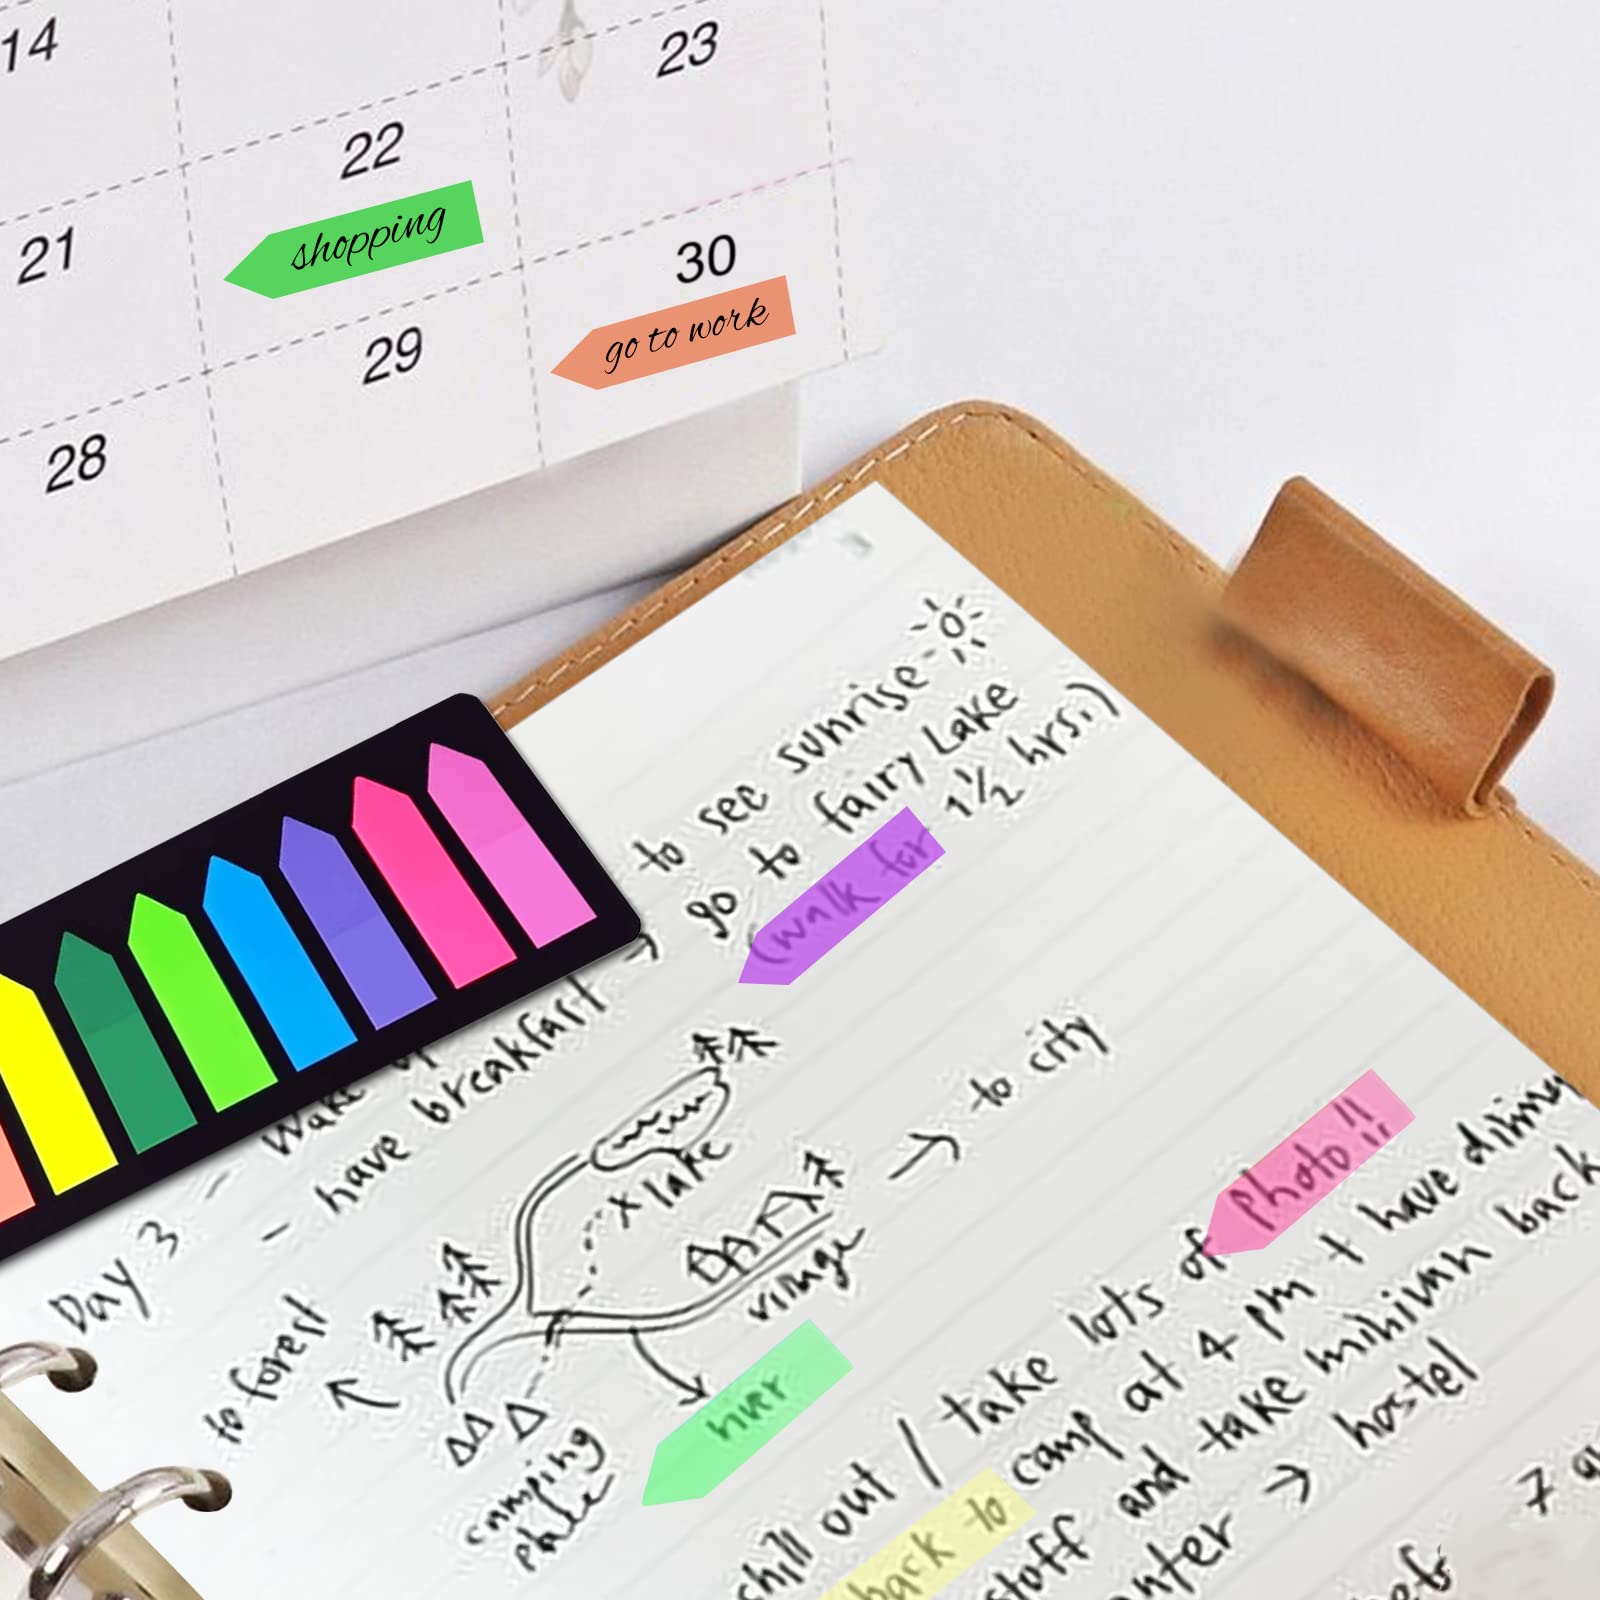 14
23
22
shopping
21
30
go to work
29
28
to see sunrise
go to fairy Lake
(walk for 1½ hrs.)
Day 3 - Wake up
- have breakfast →
to city
x lake
village
to forest
river
camping
place
chill out / take lots of photo!!
back to camp at 4 pm + have dinner
stuff and take minivan back
→ hostel
7